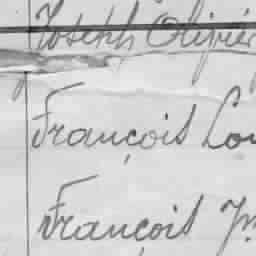 Joseph Olivier
François Lou
François